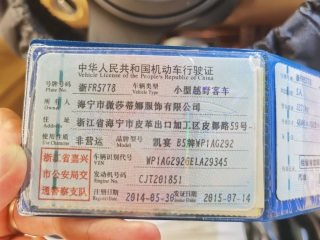 中华人民共和国机动车行驶证
Vehicle License of the People's Republic of China
号牌号码 浙FR5778 车辆类型 小型越野客车
Plate No. Vehicle Type
所有人 海宁市微莎蒂娜服饰有限公司
Owner
住址 浙江省海宁市皮革出口加工区皮都路59号
Address
使用性质 非营运 品牌型号 凯宴 牌WP1AG292
Use Character Model
浙江省嘉兴 车辆识别代号 WP1AG2926ELA29345
VIN
市公安局交 发动机号码 CJT201851
Engine No.
通警察支队 注册日期 2014-05-30 发证日期 2015-07-14
Register Date Issue Date